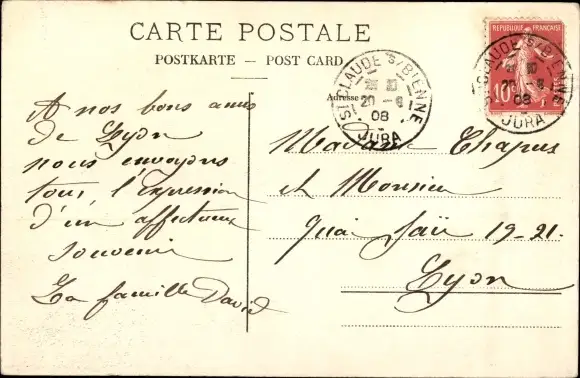 CARTE POSTALE
POSTKARTE — POST CARD
REPUBLIQUE FRANÇAISE
10c
ST CLAUDE S/BIENNE
20 - 8
08
JURA
ST CLAUDE S/BIENNE
20 - 8
08
JURA
Adresse
A nos bons amis
de Lyon
nous envoyons
tous, l'Expression
d'un affectueux
souvenir
La famille David
Madame Chapus
et Monsieur
Quai 19-21.
Lyon